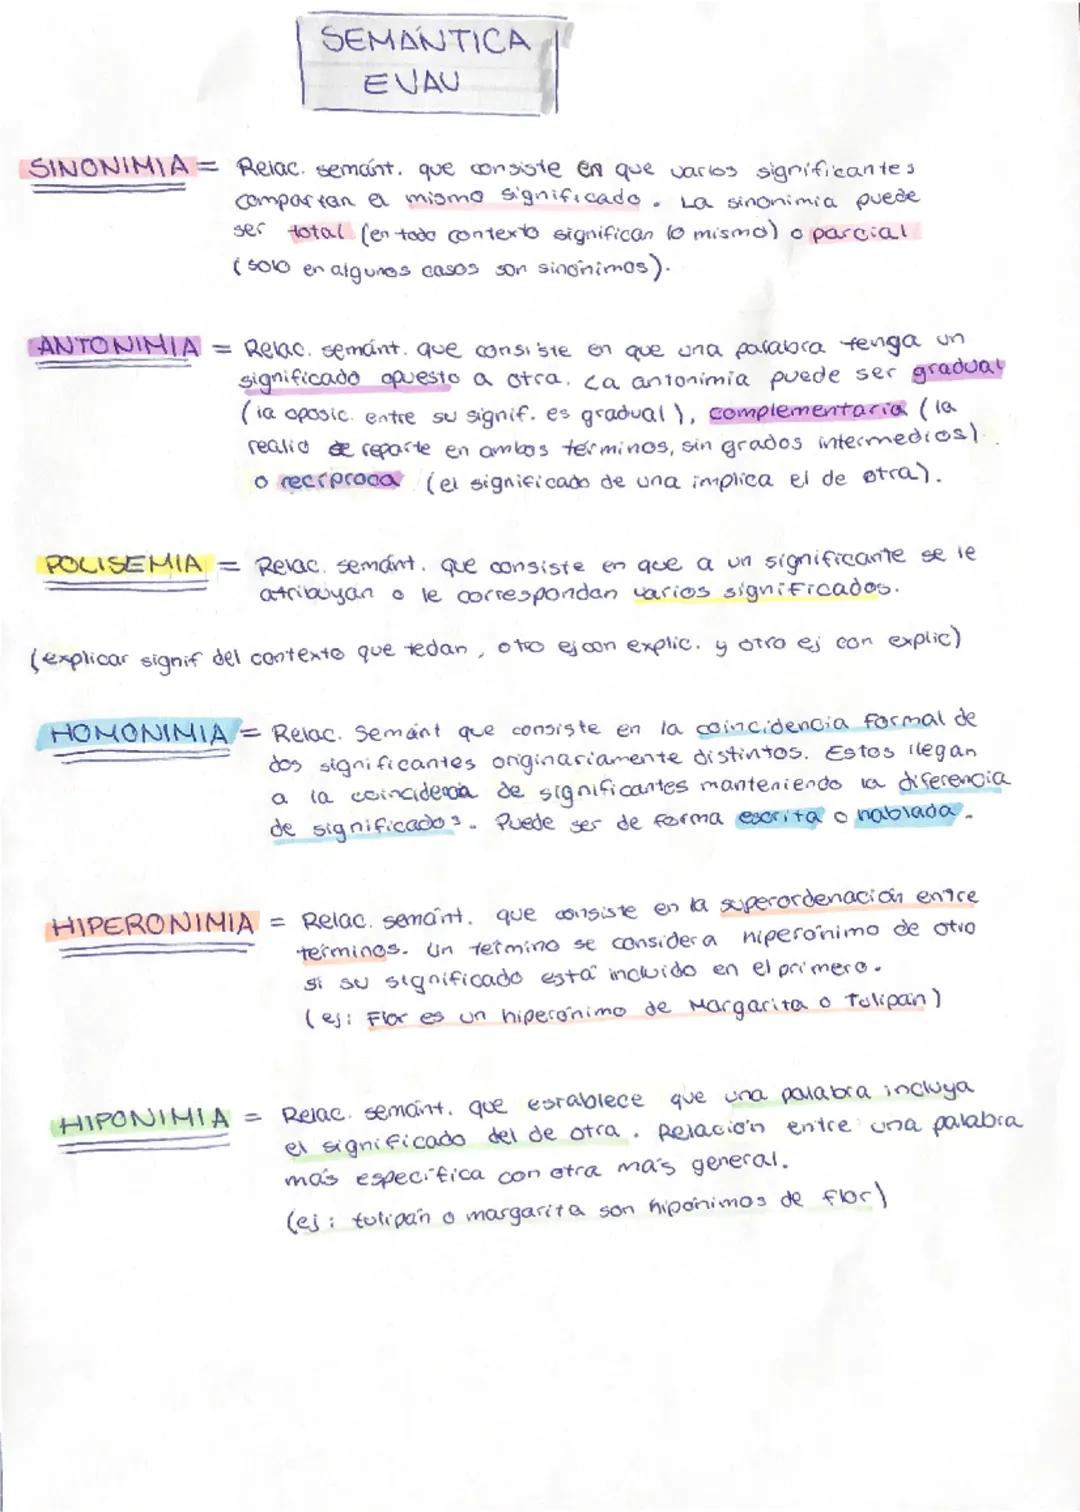 SEMÁNTICA
EVAU
SINONIMIA = Relac. semánt. que consiste en que varios significantes
compartan el mismo significado. La sinonimia puede
ser total (en todo contexto significan lo mismo) o parcial
(solo en algunos casos son sinónimos).
ANTONIMIA = Relac. semánt. que consiste en que una palabra tenga un
significado opuesto a otra. La antonimia puede ser gradual
(la oposic. entre su signif. es gradual), complementaria (la
realid se reparte en ambos términos, sin grados intermedios)
o recíproca (el significado de una implica el de otra).
POLISEMIA = Relac. semánt. que consiste en que a un significante se le
atribuyan o le correspondan varios significados.
(explicar signif del contexto que te dan, otro ej con explic. y otro ej con explic)
HOMONIMIA = Relac. Semánt que consiste en la coincidencia formal de
dos significantes originariamente distintos. Estos llegan
a la coincidencia de significantes manteniendo la diferencia
de significados. Puede ser de forma escrita o hablada.
HIPERONIMIA = Relac. semánt. que consiste en la superordenación entre
términos. Un término se considera hiperónimo de otro
si su significado está incluido en el primero.
(ej: Flor es un hiperónimo de Margarita o Tulipán)
HIPONIMIA = Relac. semánt. que establece que una palabra incluya
el significado del de otra. Relación entre una palabra
más específica con otra más general.
(ej: tulipán o margarita son hipónimos de flor)